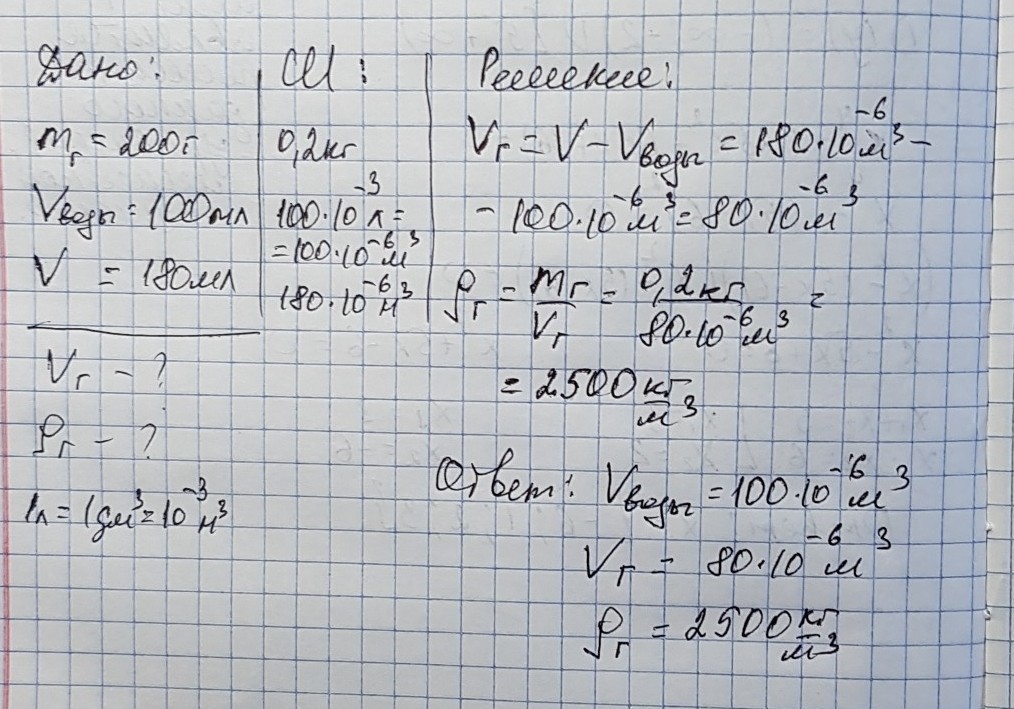 Дано:
mг = 200г
Vводы = 100мл
V = 180мл
Vг - ?
ρг - ?
1л = 1дм³ = 10⁻³м³
СИ:
0,2кг
100·10⁻³л =
= 100·10⁻⁶м³
180·10⁻⁶м³
Решение:
Vг = V - Vводы = 180·10⁻⁶м³ -
- 100·10⁻⁶м³ = 80·10⁻⁶м³
ρг = mг/Vг = 0,2кг/80·10⁻⁶м³ =
= 2500 кг/м³
Ответ: Vводы = 100·10⁻⁶м³
Vг = 80·10⁻⁶м³
ρг = 2500 кг/м³